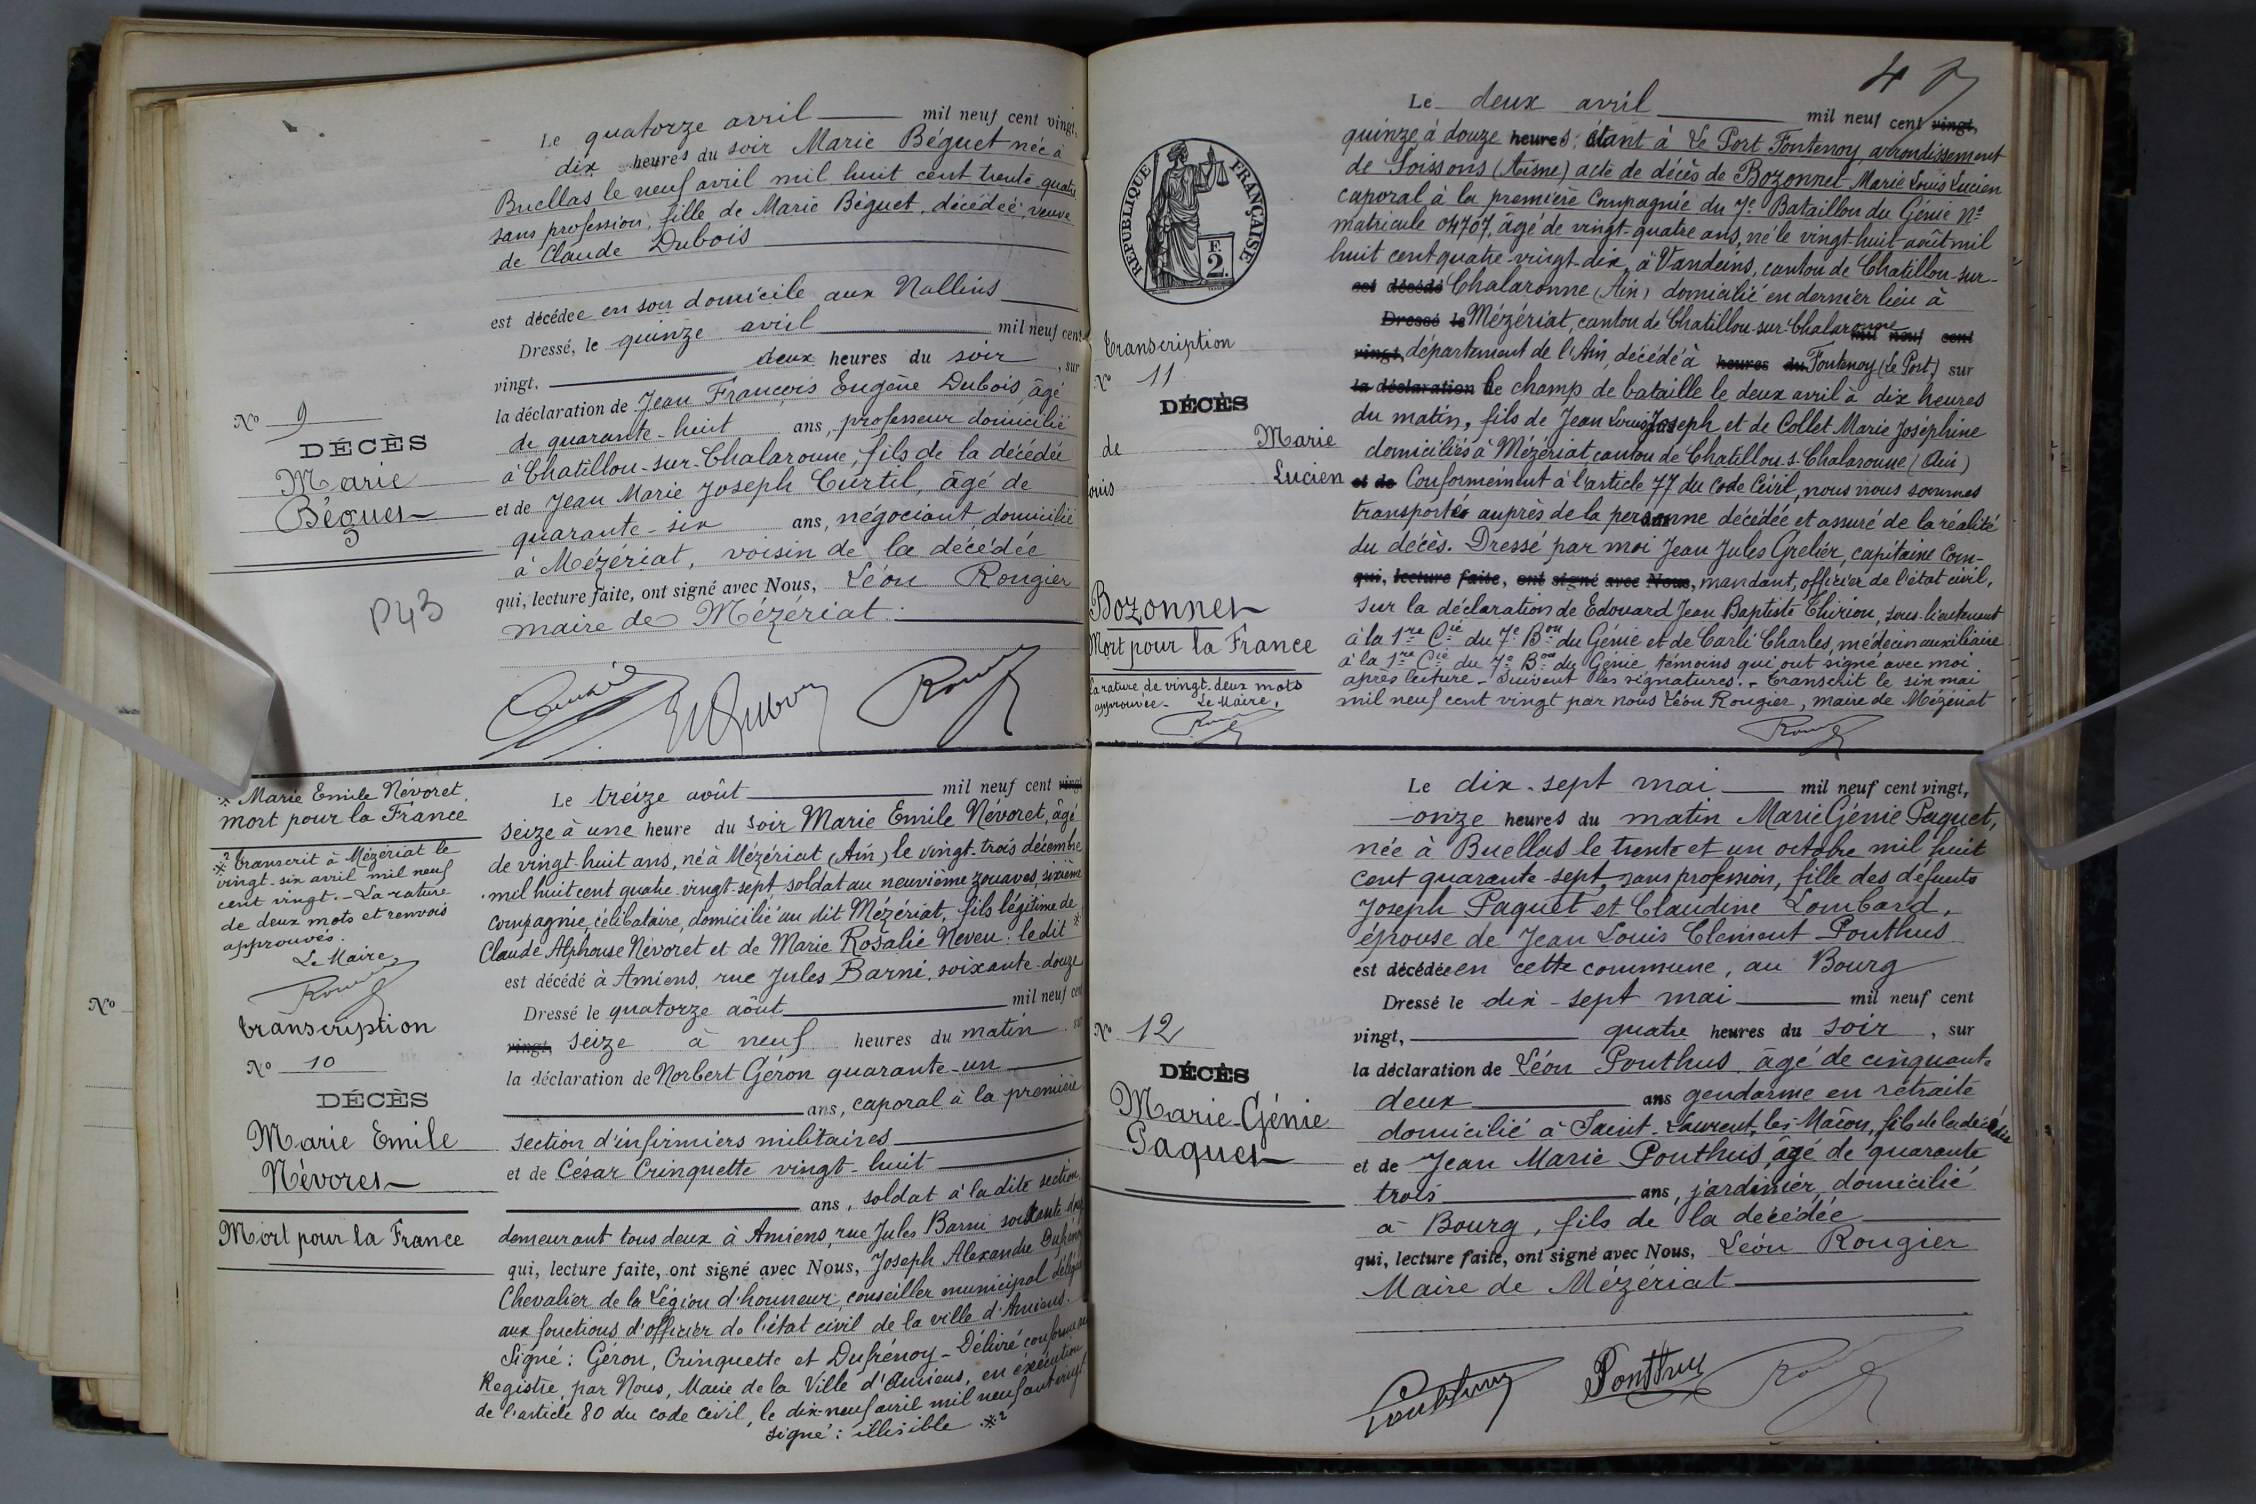 Le quatorze avril mil neuf cent vingt,
dix heures du soir Marie Béguet née à
Buellas le neuf avril mil huit cent trente quatre
sans profession, fille de Marie Béguet, décédée veuve
de Claude Dubois
est décédée en son domicile aux Nallins
Dressé, le quinze avril mil neuf cent
vingt, deux heures du soir, sur
la déclaration de Jean François Eugène Dubois, âgé
de quarante-huit ans, professeur domicilié
à Chatillon-sur-Chalaronne, fils de la décédée
et de Jean Marie Joseph Curtil, âgé de
quarante-six ans, négociant, domicilié
à Mézériat, voisin de la décédée
qui, lecture faite, ont signé avec Nous, Léon Rougier
maire de Mézériat.
No 9
DÉCÈS
Marie
Béguet
P43
* Marie Emile Névoret,
mort pour la France
*2 Transcrit à Mézériat le
vingt-six avril mil neuf
cent vingt. - La rature
de deux mots et renvois
approuvés.
Le Maire,
Transcription
No 10
DÉCÈS
Marie Emile
Névoret
Mort pour la France
No
Le treize août mil neuf cent vingt
seize à une heure du soir Marie Emile Névoret, âgé
de vingt-huit ans, né à Mézériat (Ain) le vingt-trois décembre
mil huit cent quatre-vingt-sept soldat au neuvième zouaves, sixième
compagnie, célibataire, domicilié au dit Mézériat, fils légitime de
Claude Alphonse Névoret et de Marie Rosalie Neveu : le dit *
est décédé à Amiens, rue Jules Barni, soixante-douze
Dressé le quatorze août mil neuf cent
vingt, seize à neuf heures du matin sur
la déclaration de Norbert Géron quarante-un
ans, caporal à la première
section d'infirmiers militaires
et de César Crinquette vingt-huit
ans, soldat à la dite section
demeurant tous deux à Amiens, rue Jules Barni soixante douze
qui, lecture faite, ont signé avec Nous, Joseph Alexandre Dufrénoy
Chevalier de la Légion d'honneur, conseiller municipal délégué
aux fonctions d'officier de l'état civil de la ville d'Amiens.
Signé : Géron, Crinquette et Dufrénoy - Délivré conforme au
Registre, par Nous, Maire de la Ville d'Amiens, en exécution
de l'article 80 du code civil, le dix-neuf avril mil neuf cent vingt
signé : illisible *2
RÉPUBLIQUE FRANÇAISE
F.
2.
Transcription
No 11
DÉCÈS
de Marie
Louis Lucien
Bozonnet
Mort pour la France
la rature de vingt-deux mots
approuvée. Le Maire,
4
Le deux avril mil neuf cent vingt,
quinze à douze heures, étant à Le Port Fontenoy arrondissement
de Soissons (Aisne) acte de décès de Bozonnet Marie Louis Lucien
caporal à la première Compagnie du 7e Bataillon du Génie No
matricule 04707, âgé de vingt-quatre ans, né le vingt-huit août mil
huit cent quatre-vingt-dix, à Vandeins, canton de Chatillon-sur-
est décédé Chalaronne (Ain) domicilié en dernier lieu à
Dressé le Mézériat, canton de Chatillon-sur-Chalaronne mil neuf cent
vingt, département de l'Ain, décédé à heures du Fontenoy (Le Port) sur
la déclaration le champ de bataille le deux avril à dix heures
du matin, fils de Jean Louis Joseph et de Collet Marie Joséphine
domiciliés à Mézériat canton de Chatillon-s-Chalaronne (Ain)
et de Conformément à l'article 77 du Code Civil, nous nous sommes
transporté auprès de la personne décédée et assuré de la réalité
du décès. Dressé par moi Jean Jules Grelier, capitaine Com-
qui, lecture faite, ont signé avec Nous, mandant, officier de l'état civil,
sur la déclaration de Edouard Jean Baptiste Thirion, sous-lieutenant
à la 1re Cie du 7e Bon du Génie et de Carli Charles, médecin auxiliaire
à la 1re Cie du 7e Bon du Génie, témoins qui ont signé avec moi
après lecture - Suivent les signatures. - Transcrit le six mai
mil neuf cent vingt par nous Léon Rougier, maire de Mézériat
No 12
DÉCÈS
Marie-Génie
Paquet
Le dix-sept mai mil neuf cent vingt,
onze heures du matin Marie Génie Paquet,
née à Buellas le trente et un octobre mil huit
cent quarante-sept, sans profession, fille des défunts
Joseph Paquet et Claudine Lombard,
épouse de Jean Louis Clément Ponthus
est décédée en cette commune, au Bourg
Dressé le dix-sept mai mil neuf cent
vingt, quatre heures du soir, sur
la déclaration de Léon Ponthus âgé de cinquante
deux ans gendarme en retraite
domicilié à Saint-Laurent-les-Mâcon, fils de la décédée
et de Jean Marie Ponthus, âgé de quarante
trois ans, jardinier, domicilié
à Bourg, fils de la décédée
qui, lecture faite, ont signé avec Nous, Léon Rougier
Maire de Mézériat
Ponthus